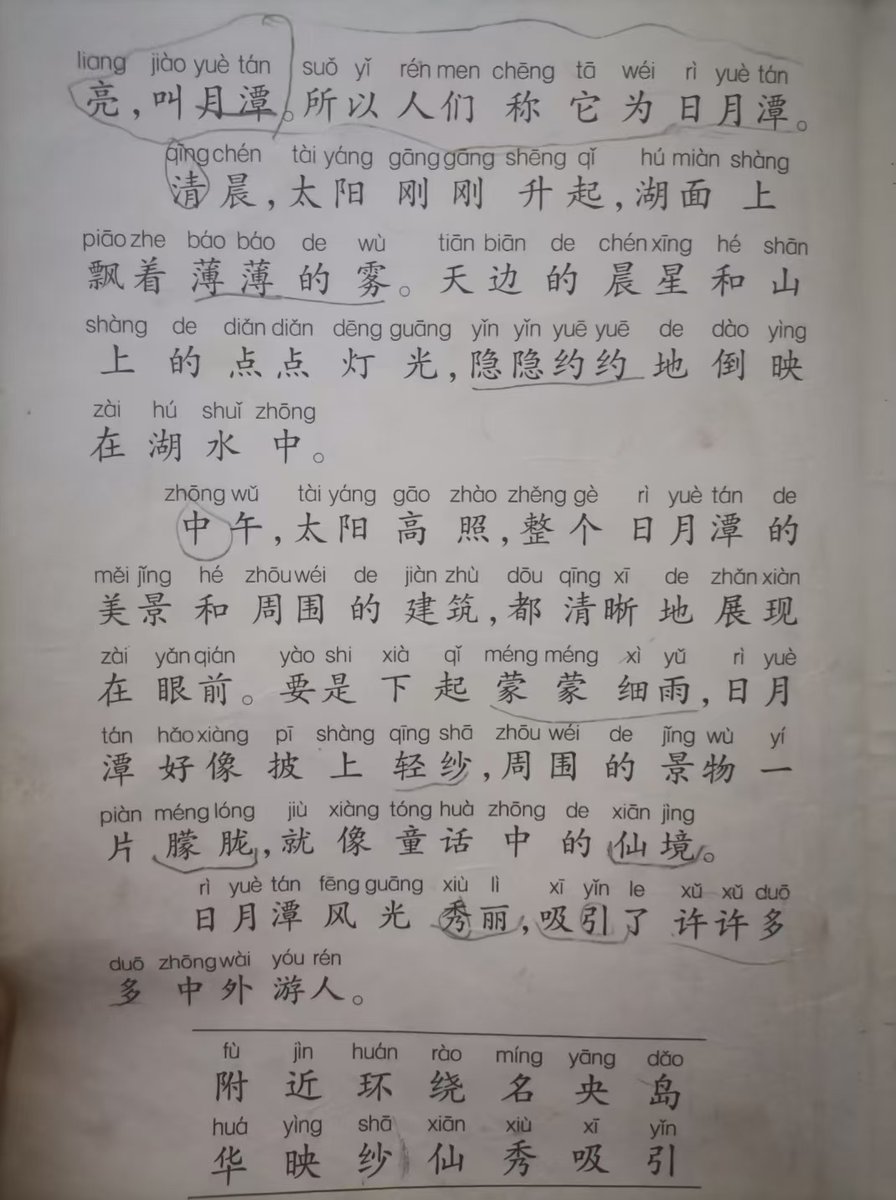 liang jiào yuè tán suǒ yǐ rén men chēng tā wéi rì yuè tán
亮，叫月潭。所以人们称它为日月潭。
qīng chén tài yáng gāng gāng shēng qǐ hú miàn shàng
清晨，太阳刚刚升起，湖面上
piāo zhe báo báo de wù tiān biān de chén xīng hé shān
飘着薄薄的雾。天边的晨星和山
shàng de diǎn diǎn dēng guāng yǐn yǐn yuē yuē de dào yìng
上的点点灯光，隐隐约约地倒映
zài hú shuǐ zhōng
在湖水中。
zhōng wǔ tài yáng gāo zhào zhěng gè rì yuè tán de
中午，太阳高照，整个日月潭的
měi jǐng hé zhōu wéi de jiàn zhù dōu qīng xī de zhǎn xiàn
美景和周围的建筑，都清晰地展现
zài yǎn qián yào shi xià qǐ méng méng xì yǔ rì yuè
在眼前。要是下起蒙蒙细雨，日月
tán hǎo xiàng pī shàng qīng shā zhōu wéi de jǐng wù yí
潭好像披上轻纱，周围的景物一
piàn méng lóng jiù xiàng tóng huà zhōng de xiān jìng
片朦胧，就像童话中的仙境。
rì yuè tán fēng guāng xiù lì xī yǐn le xǔ xǔ duō
日月潭风光秀丽，吸引了许许多
duō zhōng wài yóu rén
多中外游人。
fù jìn huán rào míng yāng dǎo
附近环绕名央岛
huá yìng shā xiān xiù xī yǐn
华映纱仙秀吸引